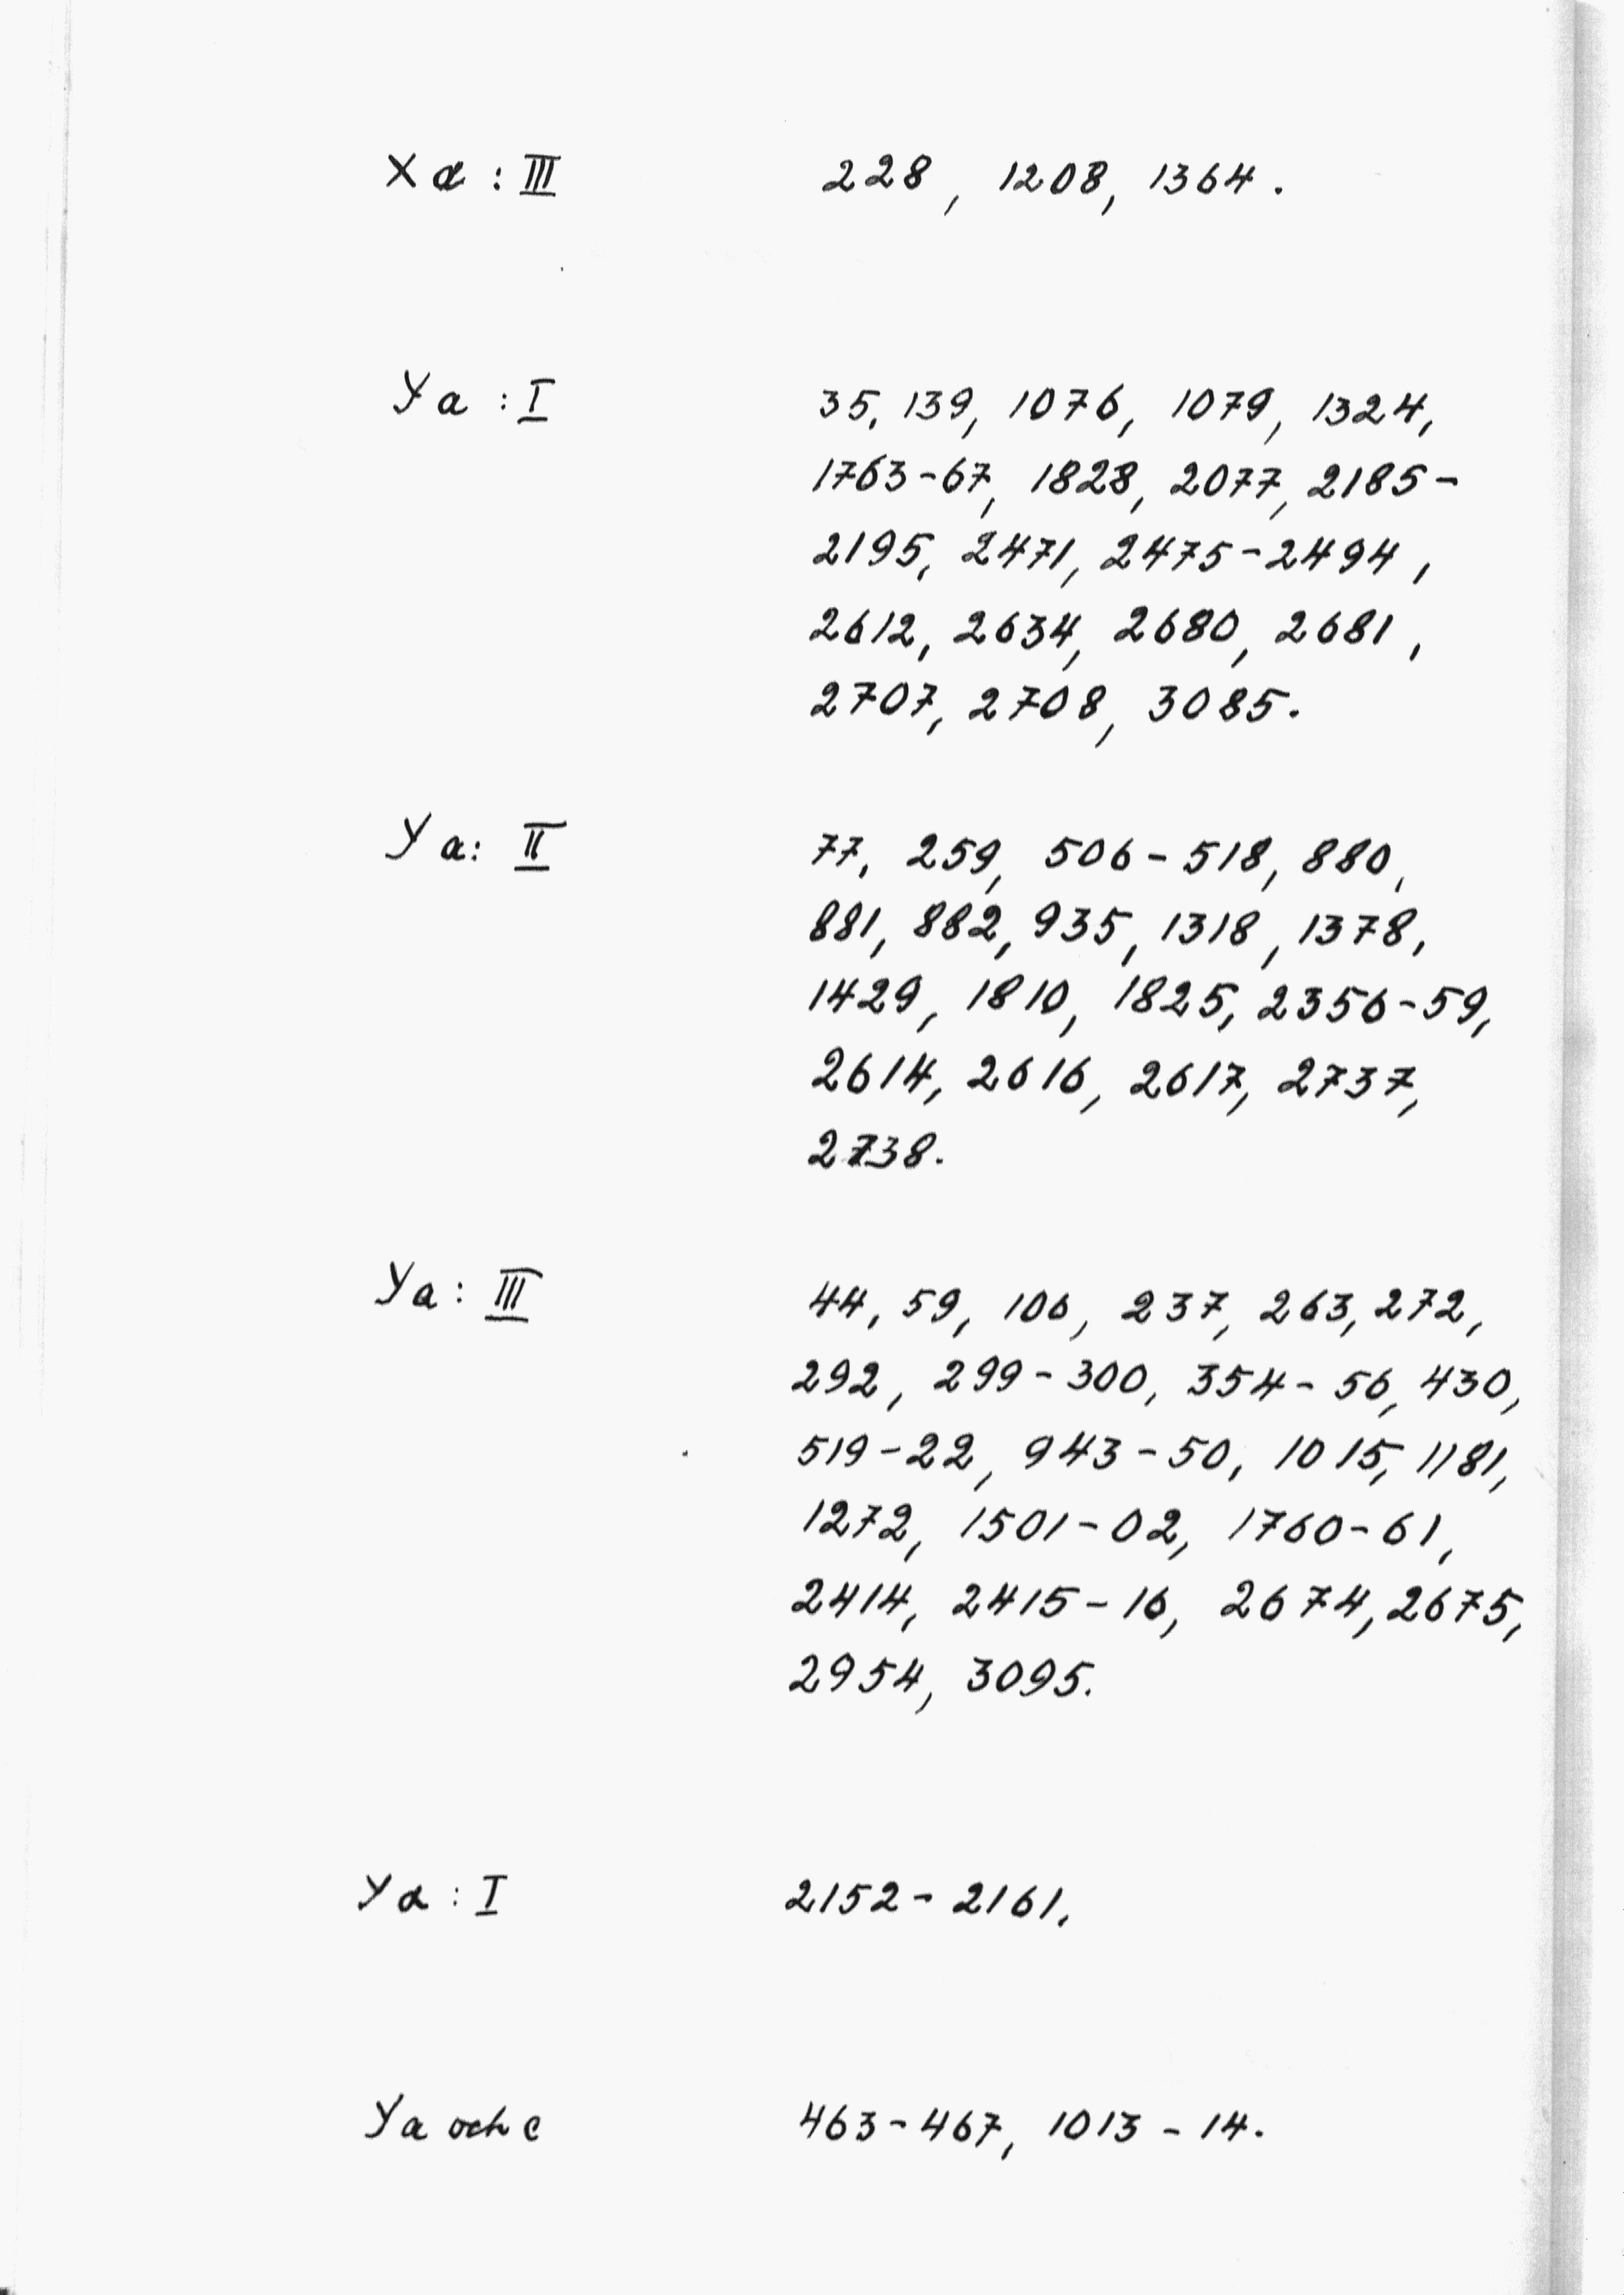 Xα : III 228, 1208, 1364.
Ya : I 35, 139, 1076, 1079, 1324,
1763-67, 1828, 2077, 2185-
2195, 2471, 2475-2494,
2612, 2634, 2680, 2681,
2707, 2708, 3085.
Ya: II 77, 259, 506-518, 880,
881, 882, 935, 1318, 1378,
1429, 1810, 1825, 2356-59,
2614, 2616, 2617, 2737,
2738.
Ya : III 44, 59, 106, 237, 263, 272,
292, 299-300, 354-56, 430,
519-22, 943-50, 1015, 1181,
1272, 1501-02, 1760-61,
2414, 2415-16, 2674, 2675,
2954, 3095.
Yα : I 2152-2161.
Ya och c 463-467, 1013-14.